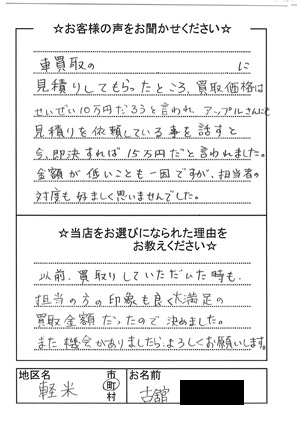 ☆お客様の声をお聞かせください☆
車買取の に
見積りしてもらったところ、買取価格は
せいぜい10万円だろうと言われ、アップルさんにも
見積りを依頼している事を話すと
今、即決すれば15万円だと言われました。
金額が低いことも一因ですが、担当者の
対度も好ましく思いませんでした。
☆当店をお選びになられた理由を
お教えください☆
以前、買取りしていただいた時も、
担当の方の印象も良く大満足の
買取金額だったので決めました。
また機会がありましたら、よろしくお願いします。
地区名 市町村 お名前
軽米 古舘